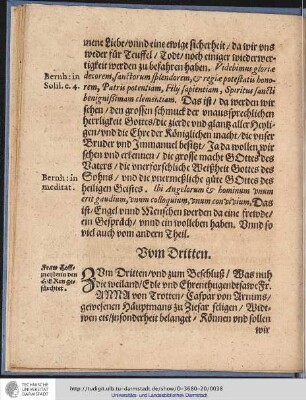 mene Liebe/ vnnd eine ewige sicherheit/ da wir vns
weder für Teuffel/ Todt/ noch einiger wiederwer-
tigkeit werden zu befahren haben. Videbimus gloriæ
Bernh: in
Solil. c. 4.
decorem, sanctorum splendorem, & regiæ potestatis hono-
rem, Patris potentiam, Filij sapientiam, Spiritus sancti
benignissimam clementiam. Das ist/ da werden wir
sehen/ den grossen schmuck der vnaussprechlichen
herrligkeit Gottes/ die zierde vnd glantz aller Heyli-
gen/ vnd die Ehre der Königlichen macht/ die vnser
Bruder vnd Immanuel besitzt/ Ja da wollen wir
sehen vnd erkennen/ die grosse macht GOttes des
Vaters/ die vnerforschliche Weißheit Gottes des
Bernh: in
meditat.
Sohns/ vnd die vnermeßliche güte GOttes des
heiligen Geistes. Ibi Angelorum & hominum vnum
erit gaudium, vnum colloquium, vnum convivium, Das
ist/ Engel vnnd Menschen werden da eine frewde/
ein Gespräch/ vnnd ein wolleben haben. Vnnd so
viel auch vom andern Theil.
Vom Dritten.
ZVm Dritten/ vnd zum Beschluß/ Was nuh
die weiland/ Edle vnd Ehrentugendsaw: Fr.
ANNA von Trotten/ Caspar von Arnims/
gewesenen Häuptmans zu Ziesar seligen/ Widt-
wen etc/ insonderheit belanget/ Können vnd sollen
wir
http://tudigit.ulb.tu-darmstadt.de/show/O-3680-20/0038
Universitäts- und Landesbibliothek Darmstadt
TECHNISCHE
UNIVERSITÄT
DARMSTADT